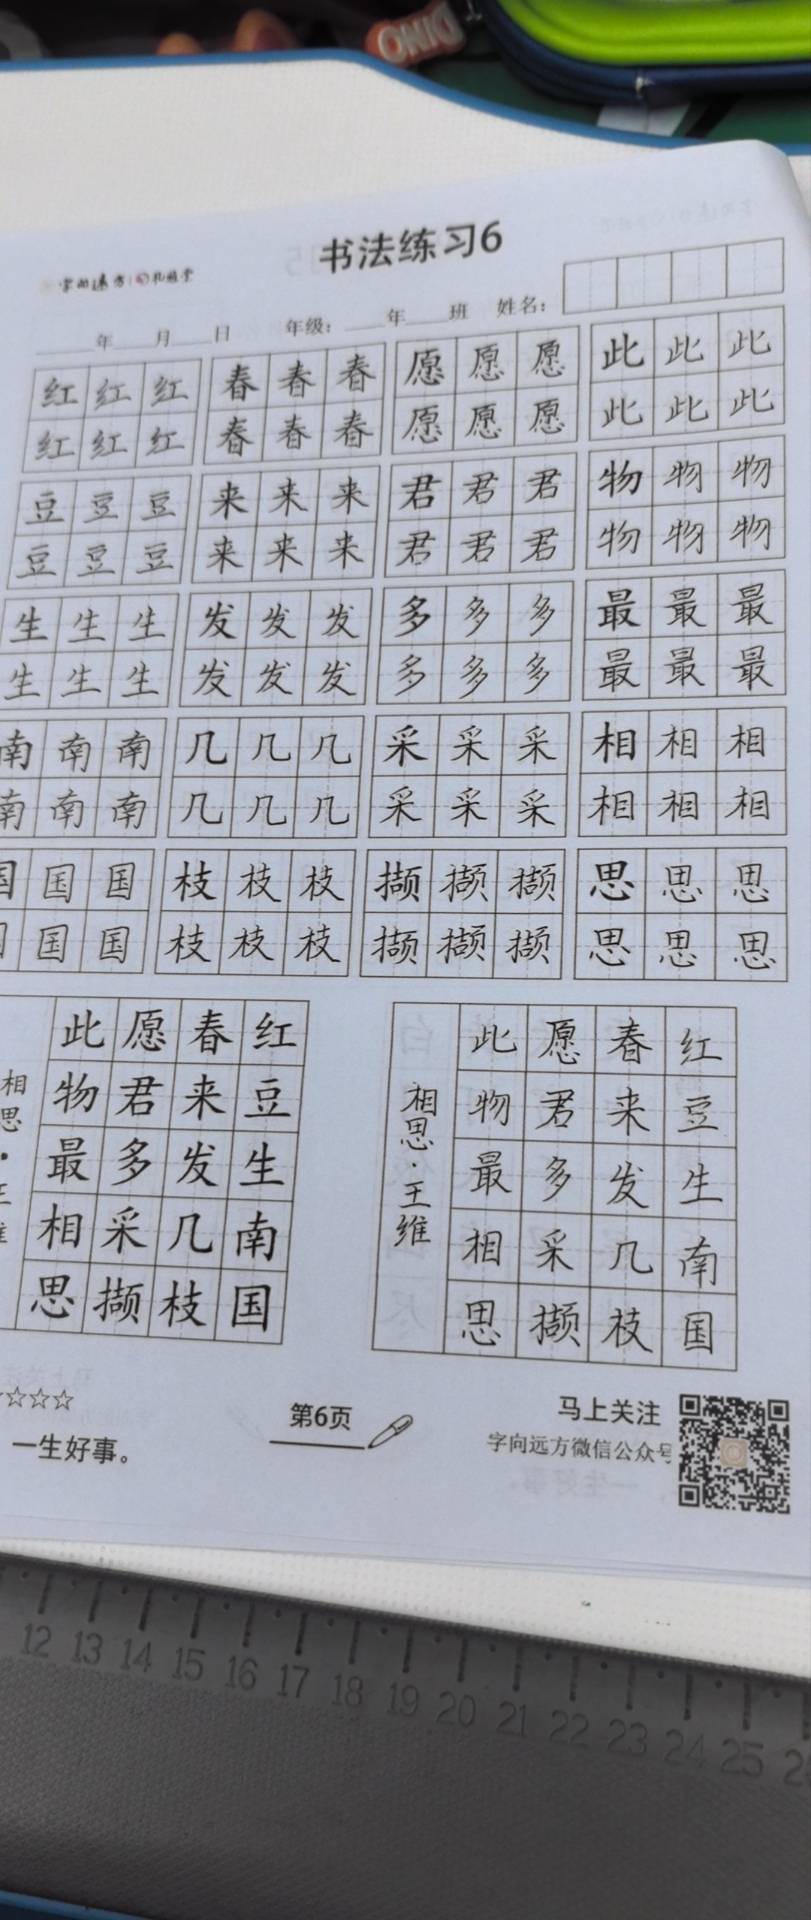 DINO
书法练习6
字向远方
年 月 日 年级: 年 班 姓名:
红红红 春春春 愿愿愿 此此此
红红红 春春春 愿愿愿 此此此
豆豆豆 来来来 君君君 物物物
豆豆豆 来来来 君君君 物物物
生生生 发发发 多多多 最最最
生生生 发发发 多多多 最最最
南南南 几几几 采采采 相相相
南南南 几几几 采采采 相相相
国国国 枝枝枝 撷撷撷 思思思
国国国 枝枝枝 撷撷撷 思思思
红豆生南国
春来发几枝
愿君多采撷
此物最相思
相思·王维
红豆生南国
春来发几枝
愿君多采撷
此物最相思
相思·王维
☆☆☆
一生好事。
第6页
马上关注
字向远方微信公众号
12 13 14 15 16 17 18 19 20 21 22 23 24 25